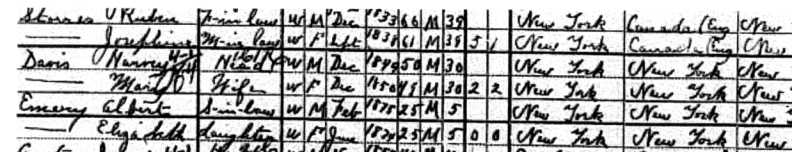 Storms Ruben F-in-law W M Dec 1833 66 M 39 New York Canada (Eng New
—— Josephine M-in law W F Sept 1838 61 M 39 5 1 New York Canada (Eng New
Davis Harvey Head W M Dec 1849 50 M 30 New York New York New
—— Mary Wife W F Dec 1850 49 M 30 2 2 New York New York New
Emery Albert S-in-law W M Feb 1875 25 M 5 New York New York New
—— Elizabeth Daughter W F June 1874 25 M 5 0 0 New York New York New